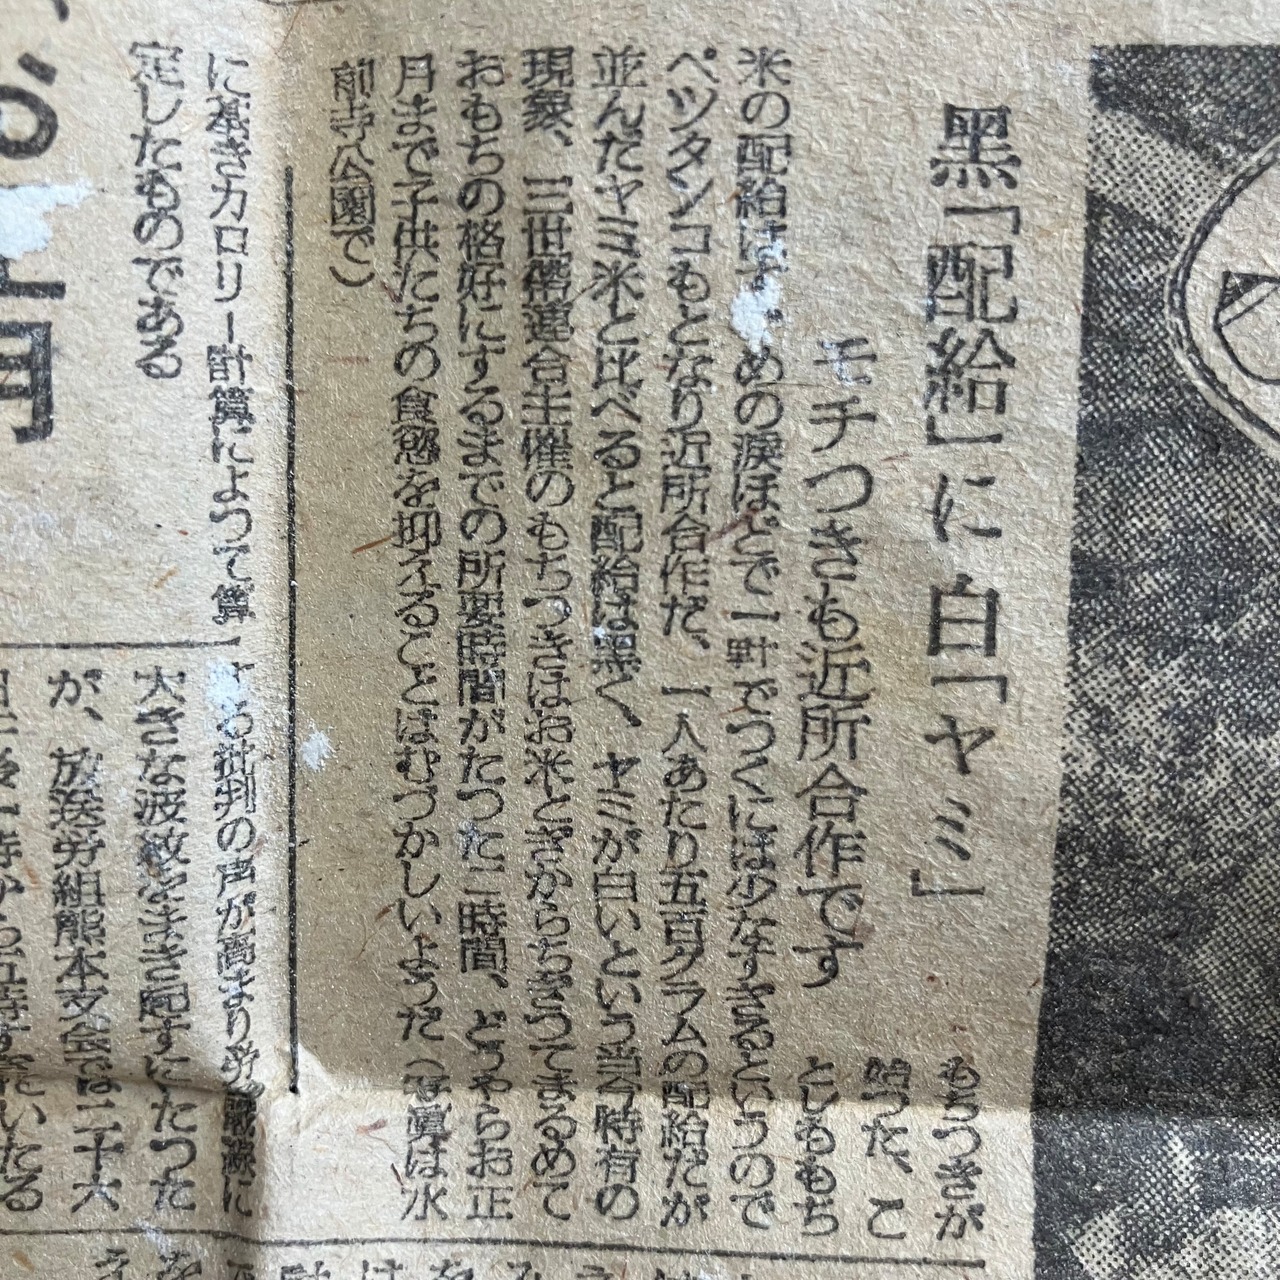 黒「配給」に白「ヤミ」
モチつきも近所合作です
もちつきが
始つた、こ
としももち
米の配給はすゞめの涙ほどで一軒でつくには少なすぎるというので
ペツタンコもとなり近所合作だ、一人あたり五百グラムの配給だが
並んだヤミ米と比べると配給は黒く、ヤミが白いという当今時有の
現象、三世帯連合主催のもちつきはお米とぎからちぎつてまるめて
おもちの格好にするまでの所要時間がたつた二時間、どうやらお正
月まで子供たちの食慾を抑えることはむづかしいようだ（写眞は水
前寺公園で）
に基きカロリー計算によつて算
定したものである
る批判の声が高まり
大きな波紋をまき起すにたつた
が、放送労組熊本支会では二十六
月